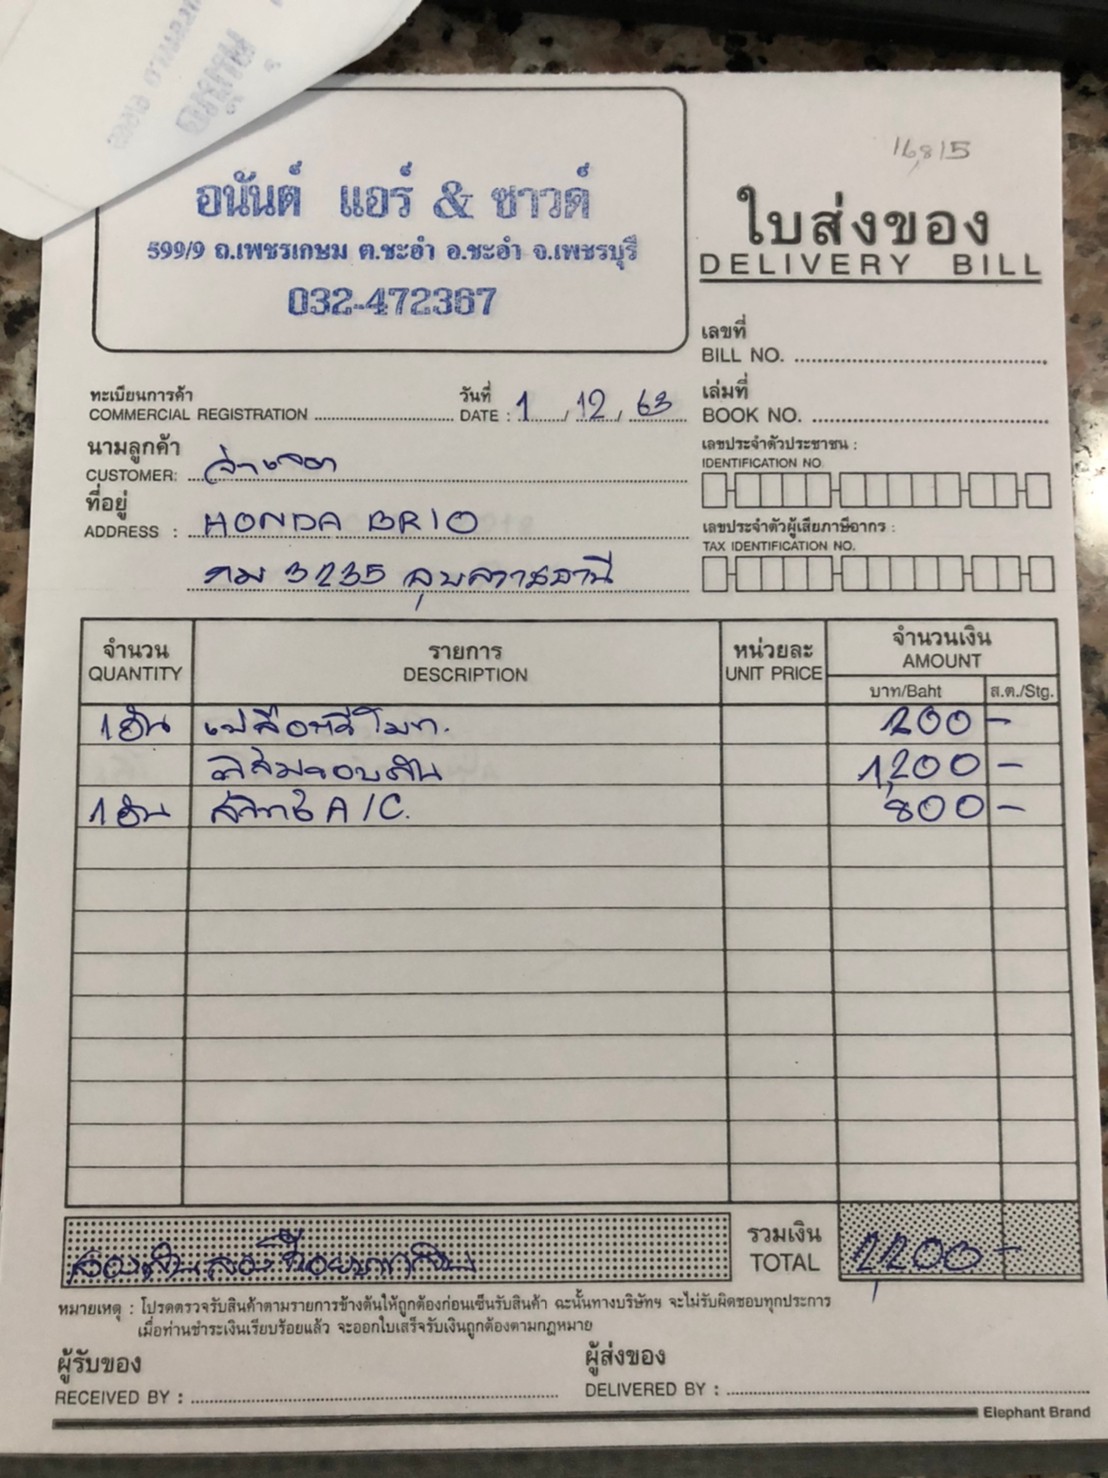 16,815
อนันต์ แอร์ & ซาวด์
599/9 ถ.เพชรเกษม ต.ชะอำ อ.ชะอำ จ.เพชรบุรี
032-472367
ใบส่งของ
DELIVERY BILL
เลขที่
BILL NO.
ทะเบียนการค้า
COMMERCIAL REGISTRATION
วันที่
DATE : 1 / 12 / 63
เล่มที่
BOOK NO.
นามลูกค้า
CUSTOMER:
เลขประจำตัวประชาชน :
IDENTIFICATION NO.
ที่อยู่
ADDRESS : HONDA BRIO
3235 อุบลราชธานี
เลขประจำตัวผู้เสียภาษีอากร :
TAX IDENTIFICATION NO.
จำนวน รายการ หน่วยละ จำนวนเงิน
QUANTITY DESCRIPTION UNIT PRICE AMOUNT
บาท/Baht ส.ต./Stg.
1 อัน เปลือกรีโมท. 200 -
ฟิล์มรอบคัน 1,200 -
1 อัน สวิทช์ A/C. 800 -
รวมเงิน
TOTAL 2,200 -
สองพันสองร้อยบาทถ้วน
หมายเหตุ : โปรดตรวจรับสินค้าตามรายการข้างต้นให้ถูกต้องก่อนเซ็นรับสินค้า ฉะนั้นทางบริษัทฯ จะไม่รับผิดชอบทุกประการ
เมื่อท่านชำระเงินเรียบร้อยแล้ว จะออกใบเสร็จรับเงินถูกต้องตามกฎหมาย
ผู้รับของ
RECEIVED BY :
ผู้ส่งของ
DELIVERED BY :
Elephant Brand